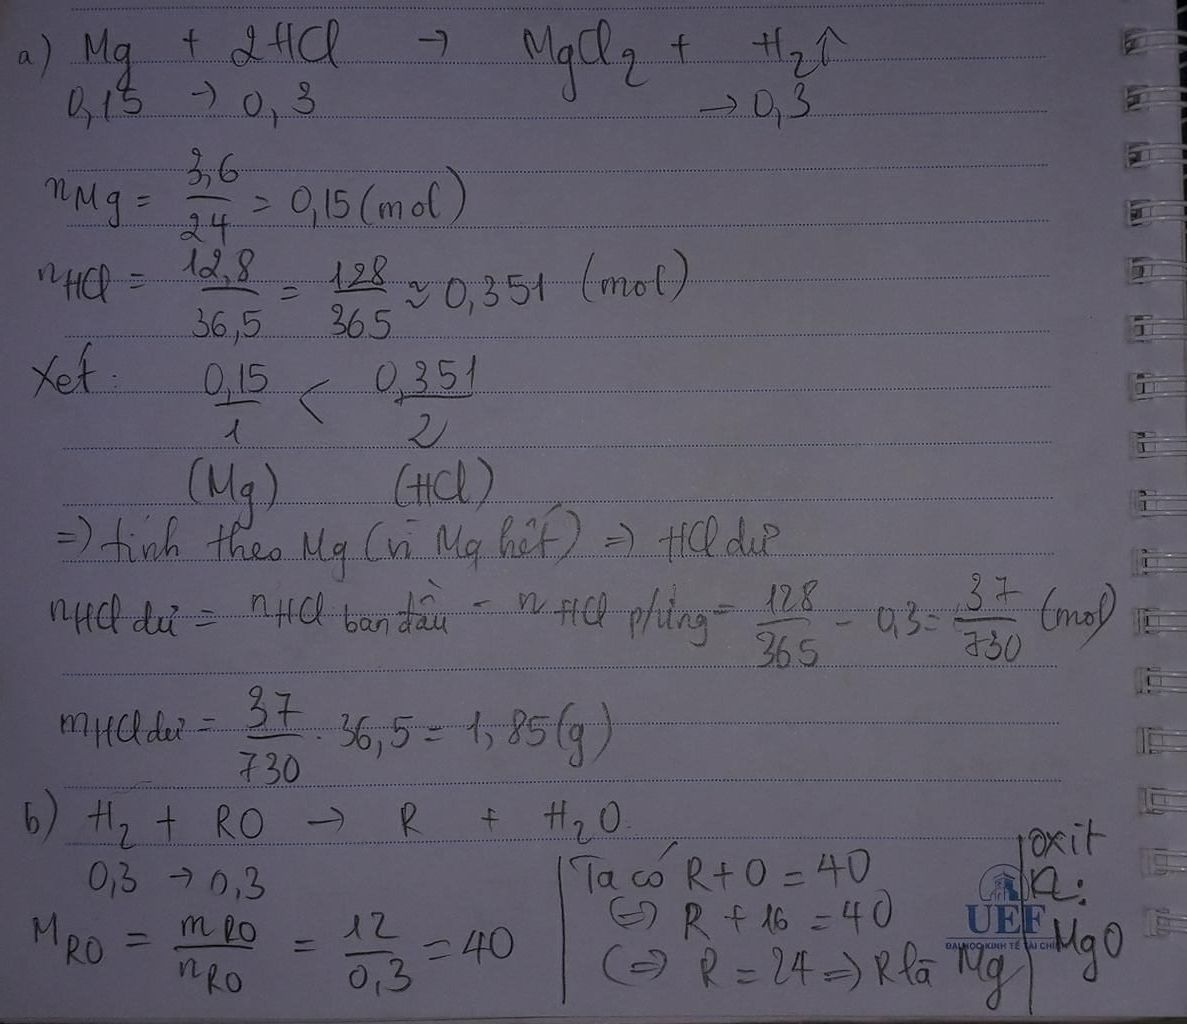 a) Mg + 2HCl → MgCl₂ + H₂↑
0,15 → 0,3 → 0,3
nMg = 3,6/24 = 0,15 (mol)
nHCl = 12,8/36,5 = 128/365 ≈ 0,351 (mol)
Xét: 0,15/1 < 0,351/2
(Mg) (HCl)
=) tính theo Mg (vì Mg hết) => HCl dư
nHCl dư = nHCl ban đầu - nHCl p/ứng = 128/365 - 0,3 = 37/730 (mol)
mHCl dư = 37/730 . 36,5 = 1,85 (g)
b) H₂ + RO → R + H₂O
0,3 → 0,3
M RO = m RO/n RO = 12/0,3 = 40
Ta có R + O = 40
(=) R + 16 = 40
(=) R = 24 => R là Mg
oxit
R:
MgO
UEF
ĐẠI HỌC KINH TẾ TÀI CHÍNH